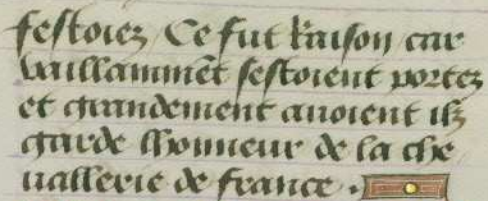 festoiez Ce fut raison car
vaillammẽt sestoient portez
et grandement auoient ilz
garde lhonneur de la che
uallerie de france .